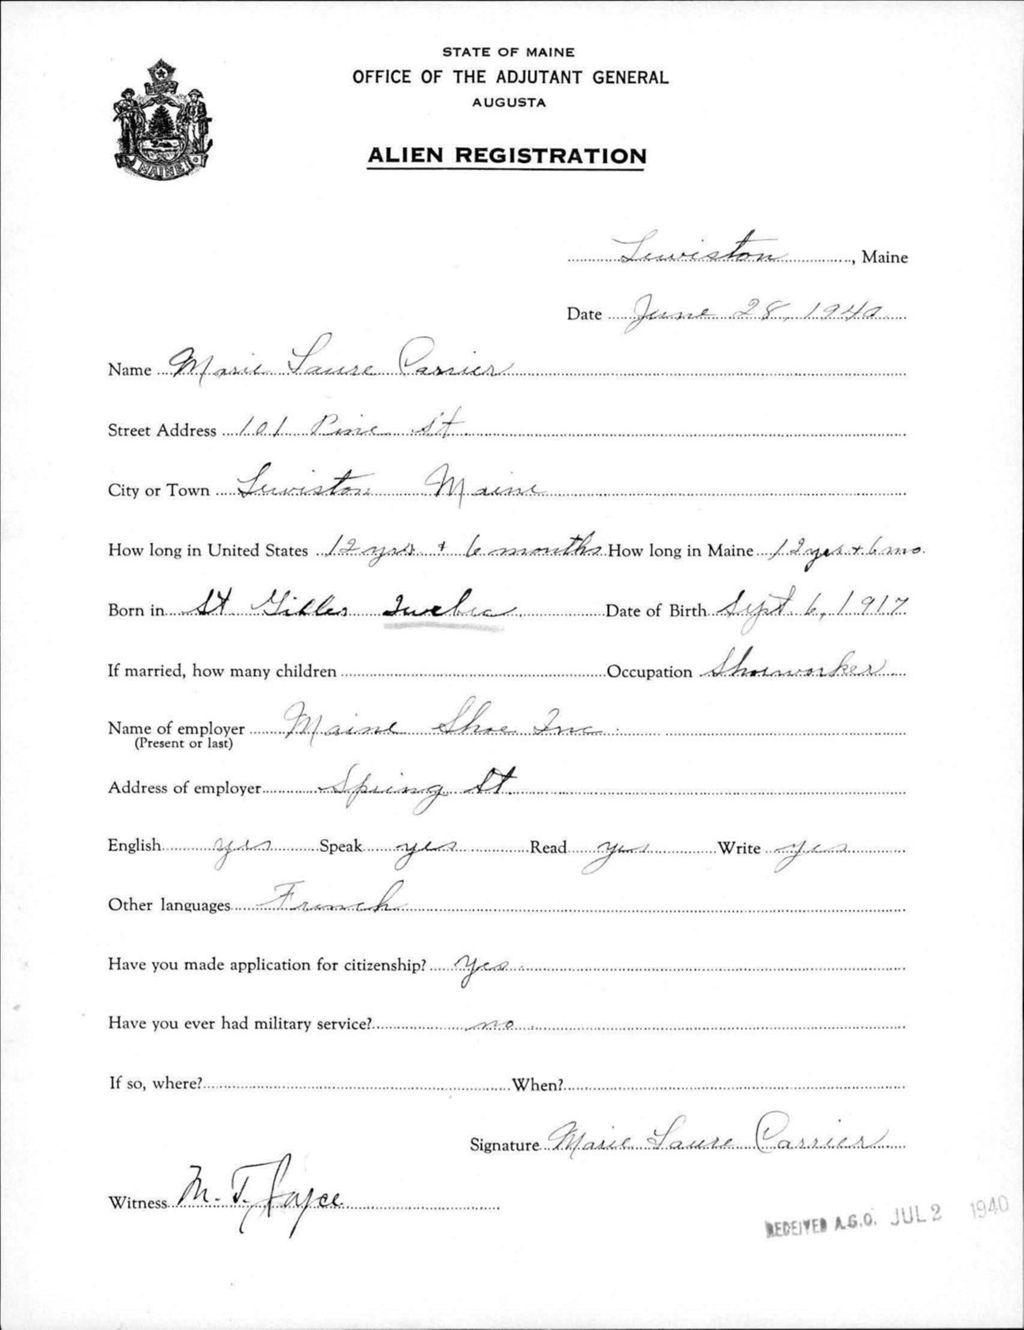 STATE OF MAINE
OFFICE OF THE ADJUTANT GENERAL
AUGUSTA
ALIEN REGISTRATION
MAINE
Lewiston, Maine
Date June 28, 1940
Name Marie Laure Carrier
Street Address 101 Pine St
City or Town Lewiston Maine
How long in United States 12 yrs + 6 months How long in Maine 12 yrs + 6 mo.
Born in St Gilles Quebec Date of Birth Sept. 6, 1917
If married, how many children Occupation Shoeworker
Name of employer Maine Shoe Inc.
(Present or last)
Address of employer Spring St.
English yes Speak yes Read yes Write yes
Other languages French
Have you made application for citizenship? Yes
Have you ever had military service? no
If so, where? When?
Signature Marie Laure Carrier
Witness M. T. Joyce
RECEIVED A.G.O. JUL 2 1940